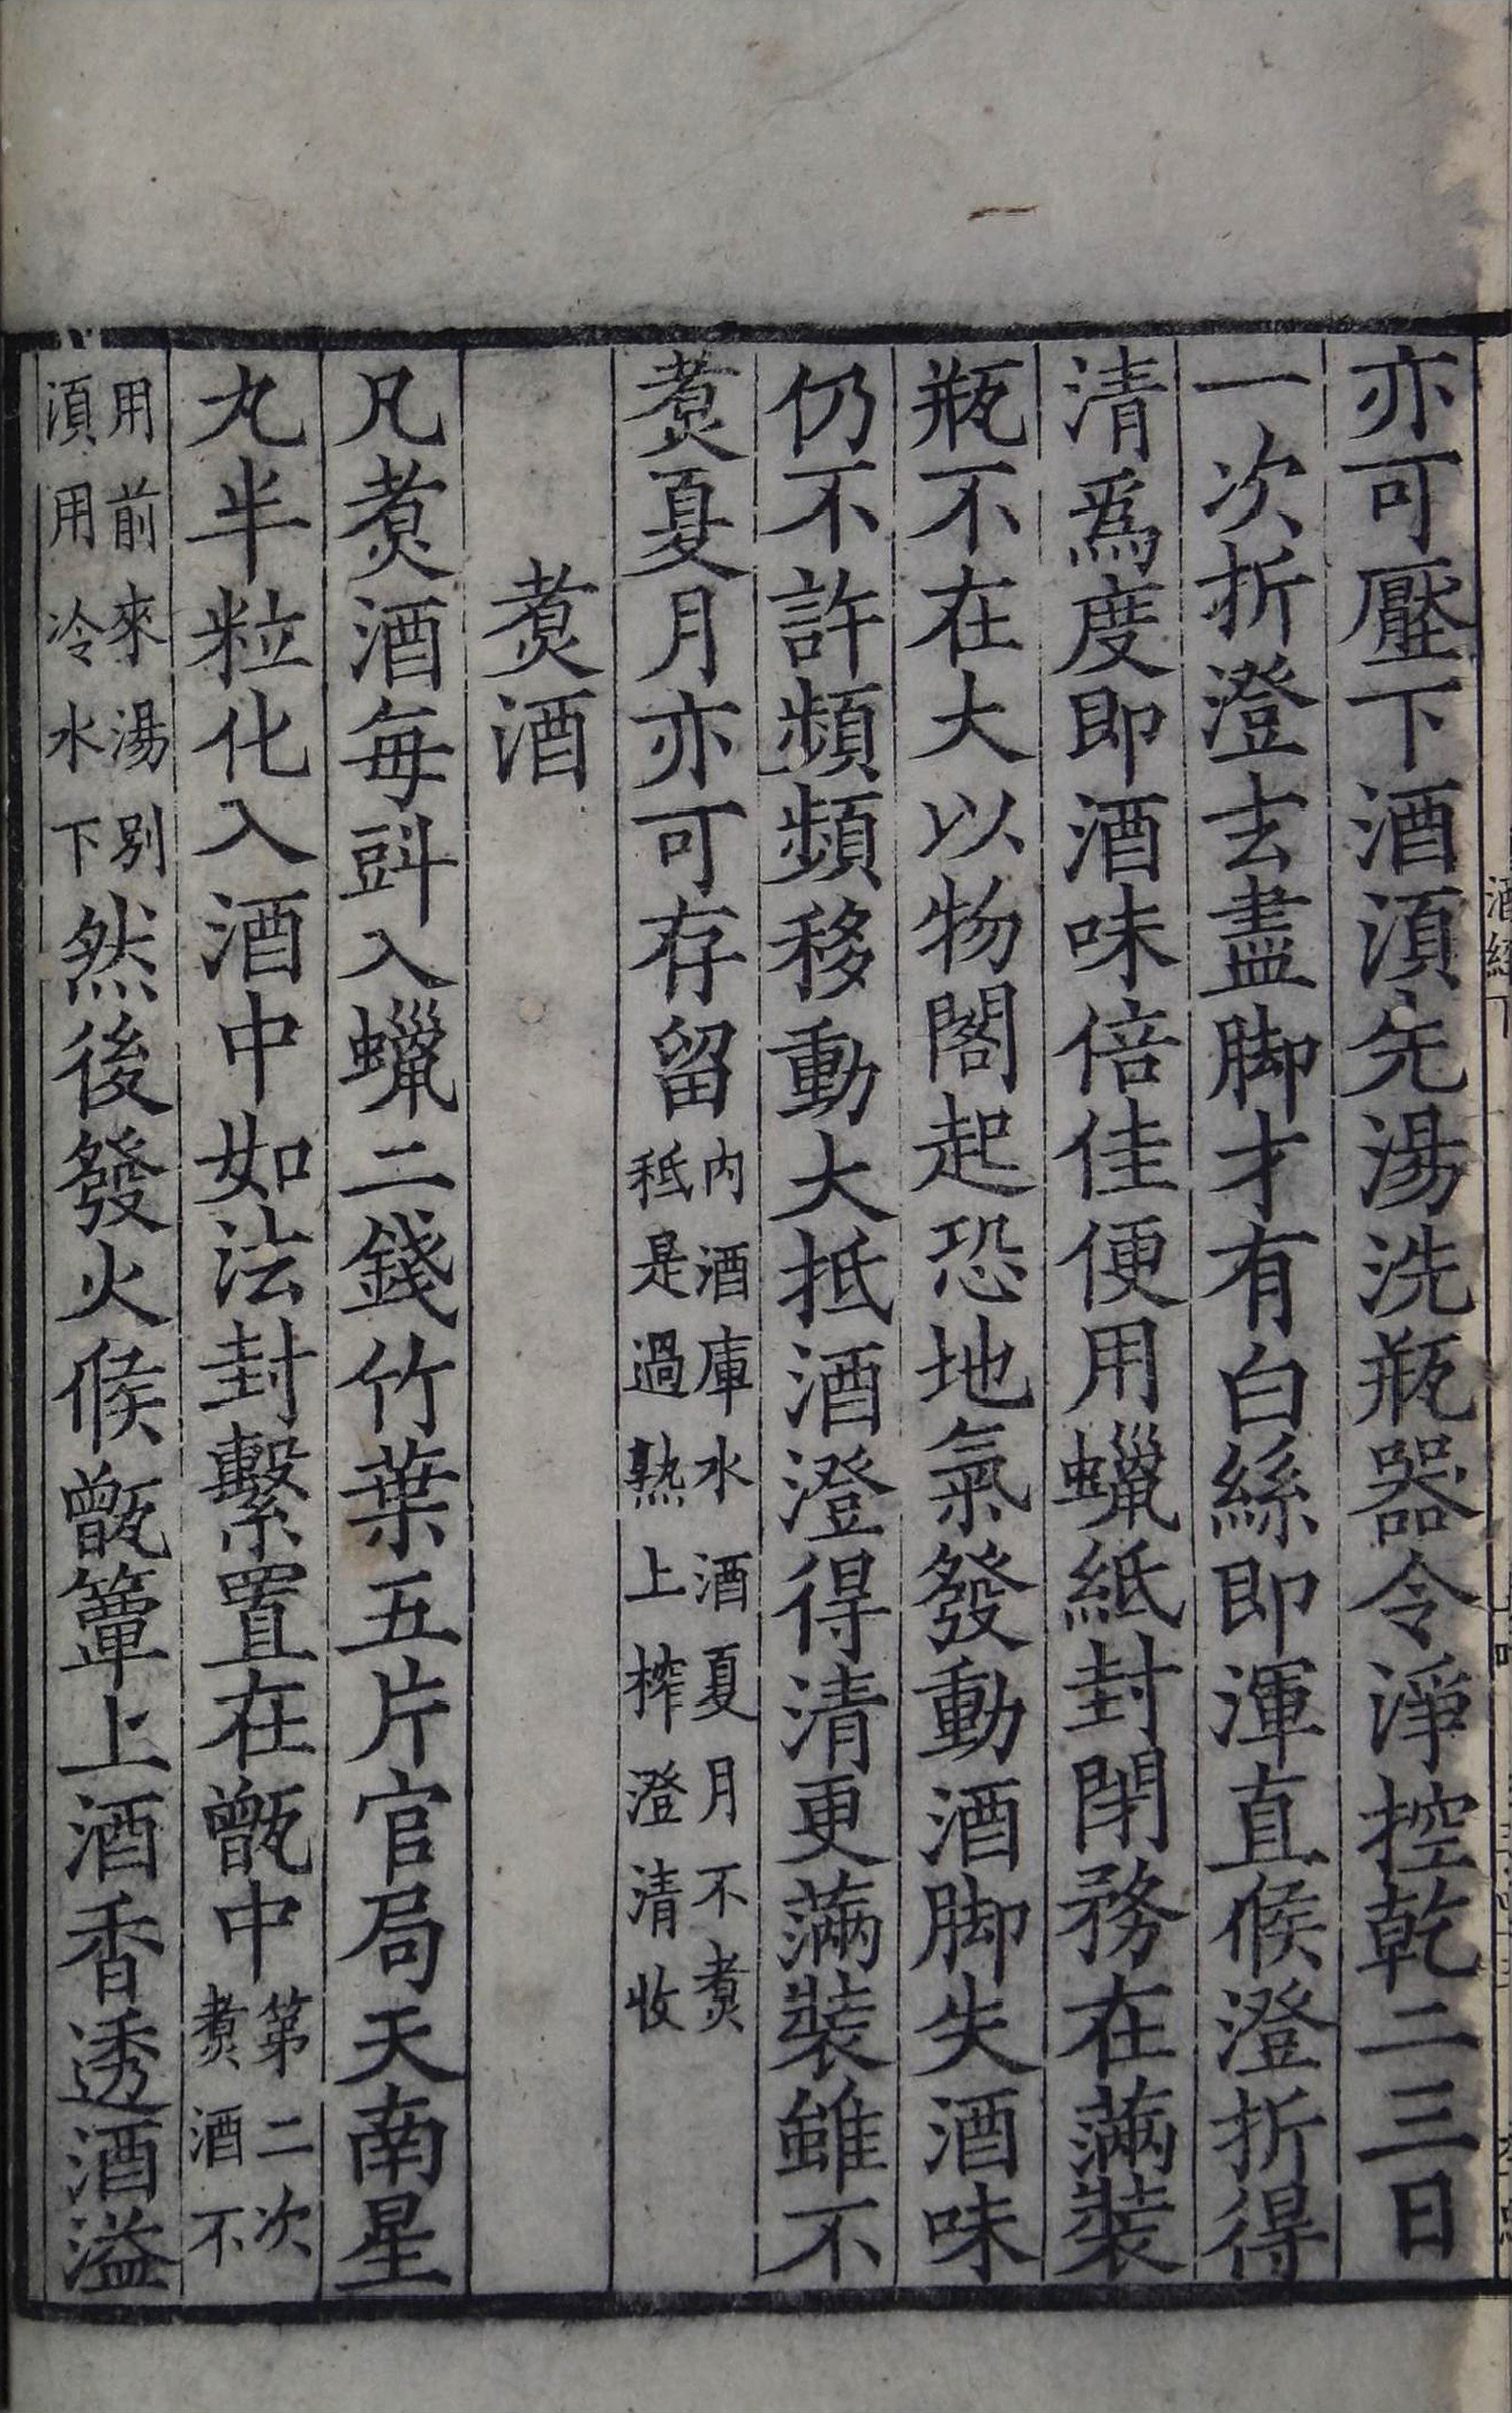 亦可壓下酒湏先湯洗瓶器令淨控乾二三日
一次折澄去盡脚才有白絲即渾直候澄折得
清爲度即酒味倍佳便用蠟紙封閉務在滿裝
瓶不在大以物閣起恐地氣發動酒脚失酒味
仍不許頻頻移動大抵酒澄得清更滿裝雖不
煑夏月亦可存留内酒庫水酒夏月不煑秪是過熟上榨澄清收
煑酒
凡煑酒每㪷入蠟二錢竹葉五片官局天南星
丸半粒化入酒中如法封繫置在甑中第二次煑酒不
用前來湯別湏用冷水下然後發火候甑簞上酒香透酒溢
酒經下